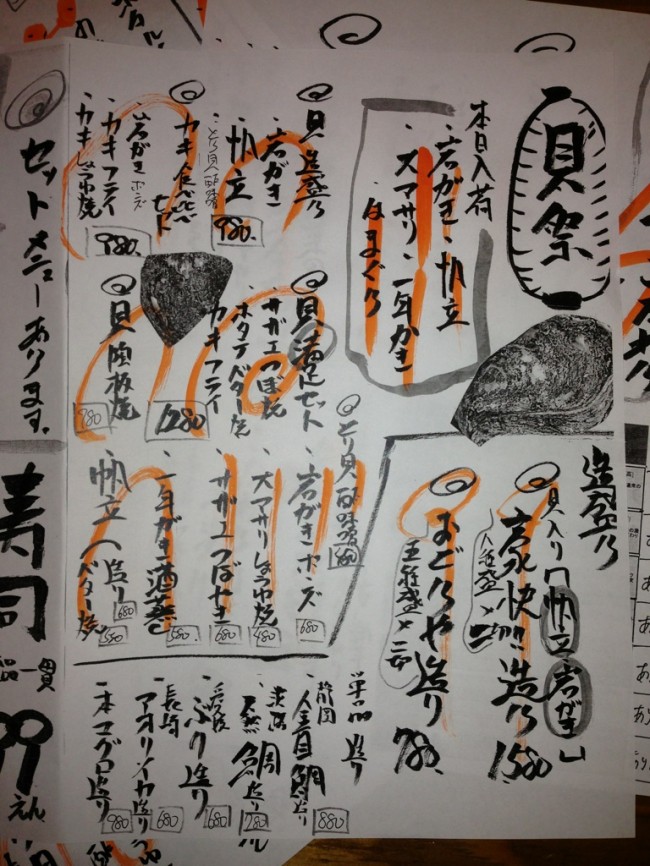 貝祭
本日入荷
・岩がき・帆立
・大アサリ・一年かき
・はまぐり
貝造盛り
・岩がき
・帆立
・とり貝酢味噌
980.
カキ食べ比べ
セット
・岩がきポンズ
・カキフライ
・カキしょうゆ焼
980.
貝満足セット
・サザエつぼ焼
・ホタテバター焼
・カキフライ
1280
貝陶板焼
980
造盛り
貝入り「帆立 岩がき」
豪快!!!造り 1,580
おどりや造り 780.
・とり貝酢味噌
・岩がきポンズ 680
・大アサリしょうゆ焼 480
・サザエつぼやき 680
・一年がき酒蒸し 580
・帆立(造り 680
バター焼 550
単品造り
静岡
・金目鯛造り 880
淡路
・天然鯛造り 780
・ぶり造り 680
長崎
・アオリイカ造り 680
・本マグロ造り 980
セットメニューあります。
寿司
一貫
99
えん